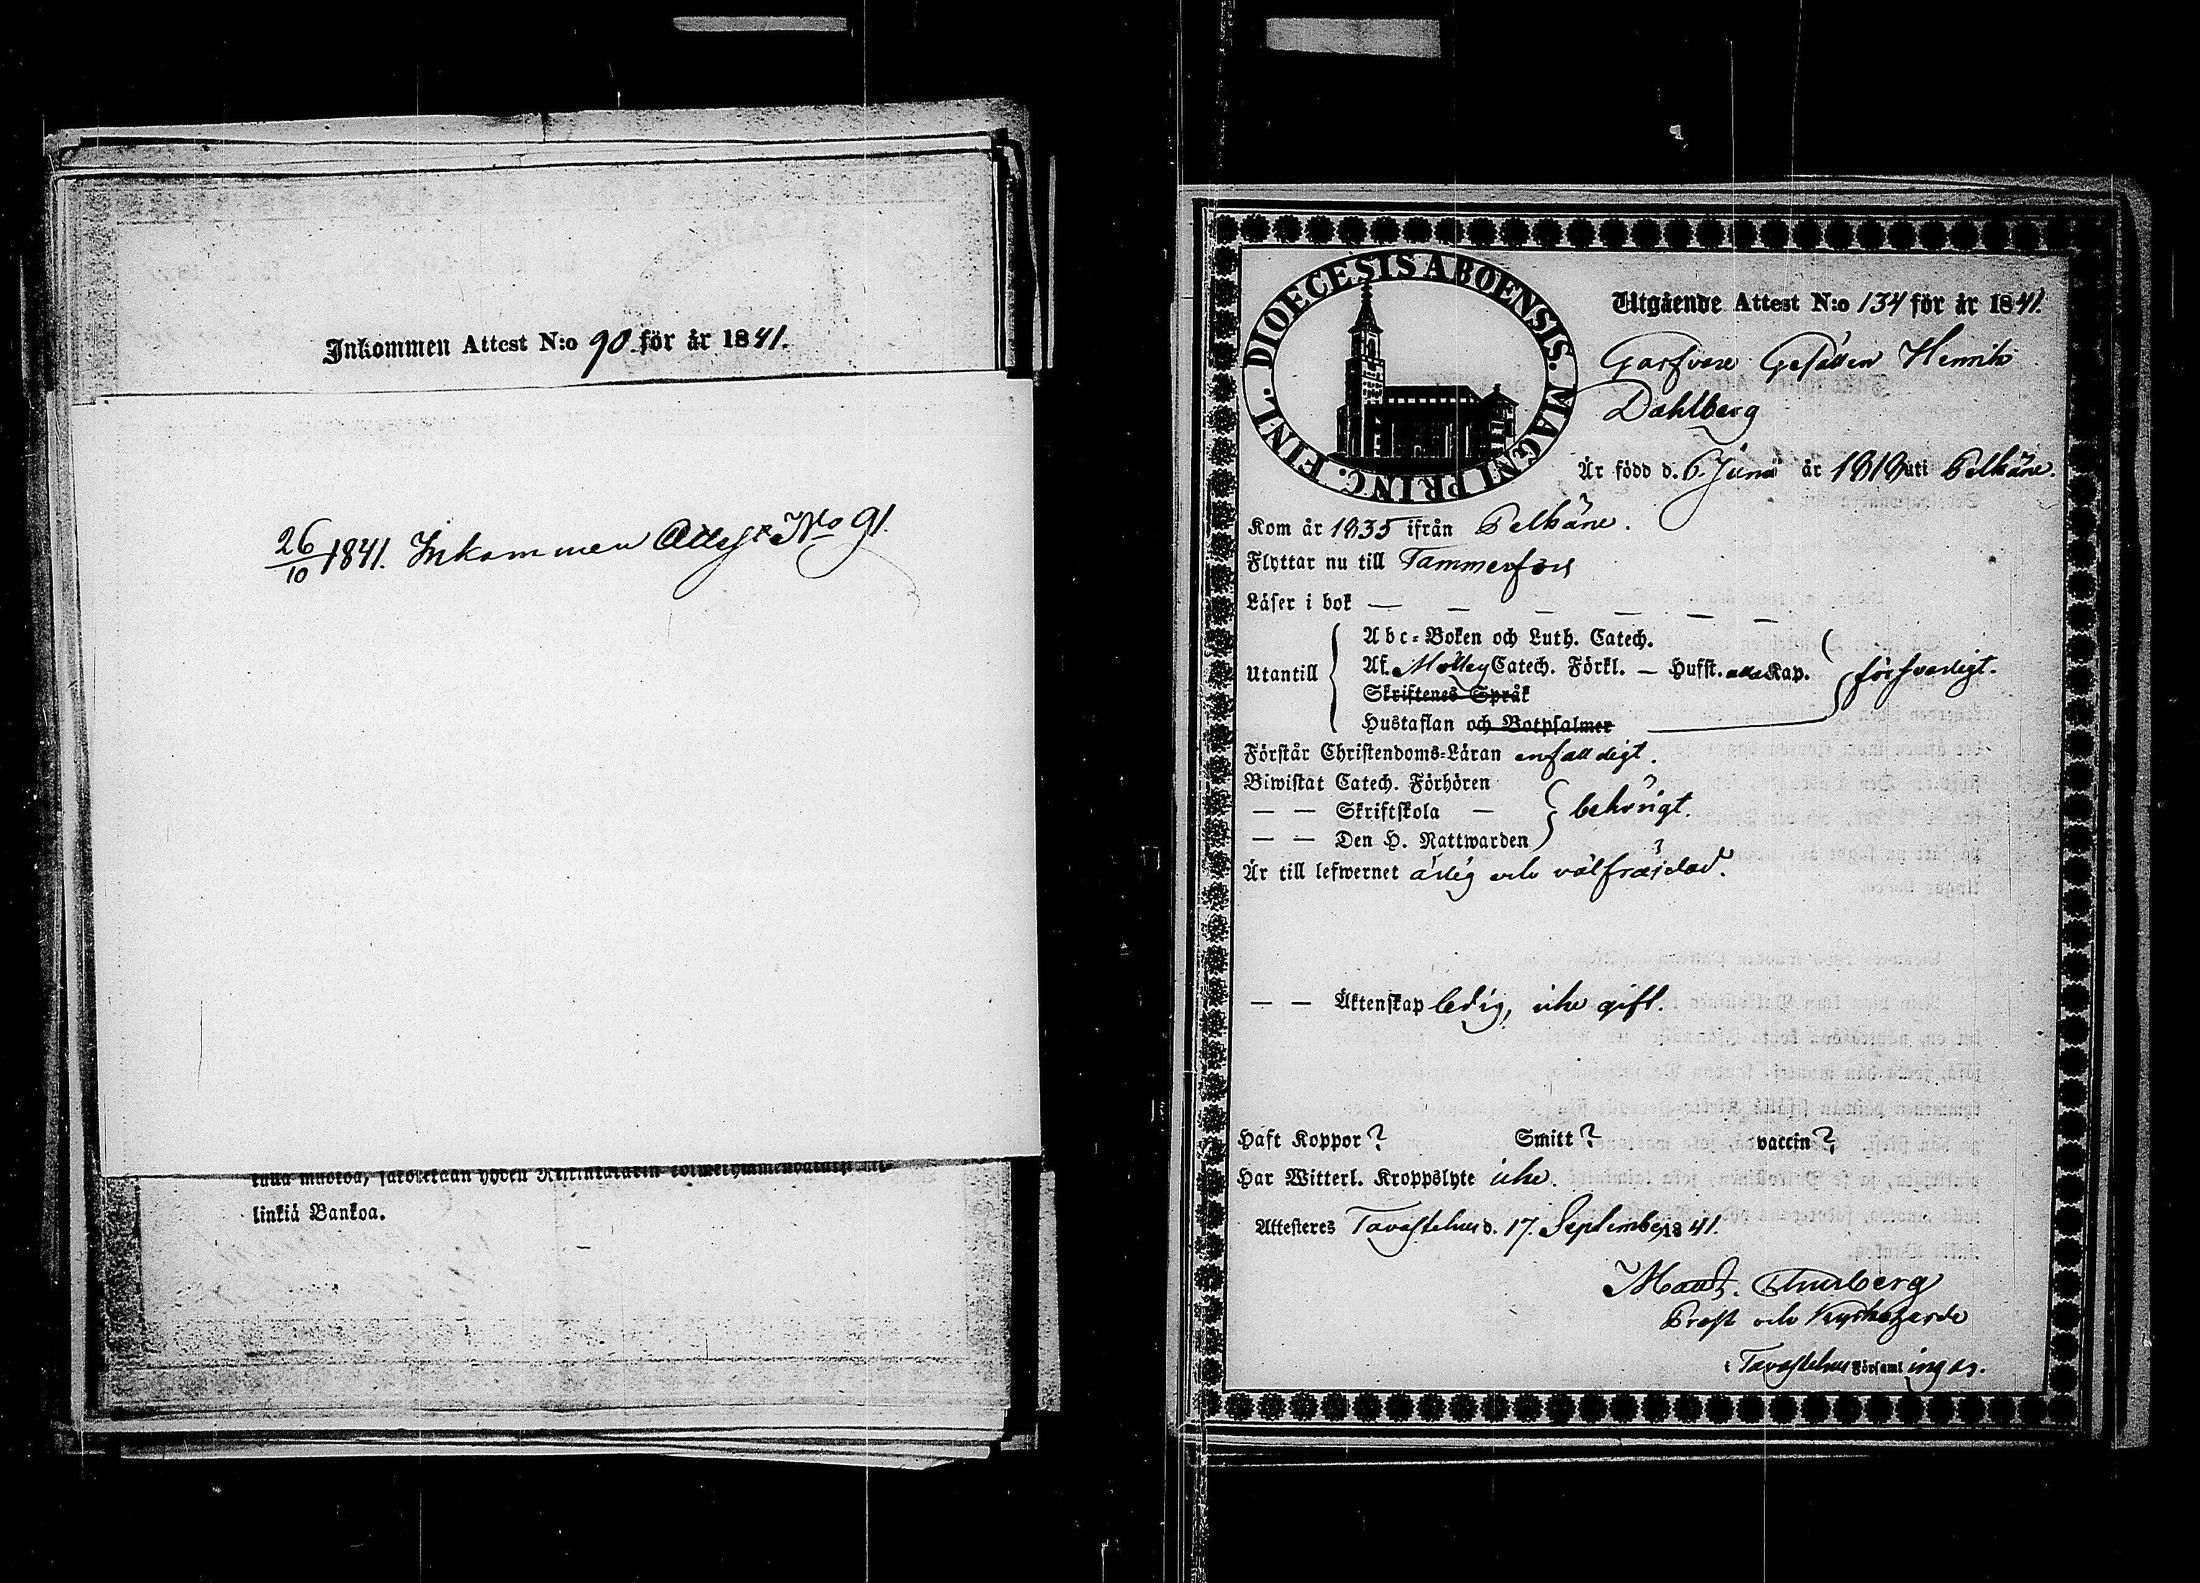 Inkommen Attest N:o 90 för år 1841.
26/10 1841. Inkommen Attest No 91.
linkiä Bankoa.
DIOECESIS ABOENSIS. MAGNI PRINC. FINL.
Utgående Attest N:o 134 för år 1841.
Garfvare Gesällen Henrik
Dahlberg
Är född d. 6 Junii år 1819 uti Pelkäne.
Kom år 1835 ifrån Pelkäne.
Flyttar nu till Tammerfors
Läser i bok — — — — — —
Abc-Boken och Luth. Catech.
Utantill Af. Möllers Catech. Förkl. — Hufst. alla Kap. försvarligt.
Skriftenes Språk
Hustaflan och Botpsalmer
Förstår Christendoms-Läran enfalldigt.
Biwistat Catech. Förhören
— — Skriftskola — behörigt.
— — Den H. Nattwarden
Är till lefwernet ärlig och välfräjdad.
— — Äktenskap ledig, icke gift.
Haft Koppor? Smitt? vaccin?
Har Witterl. Kroppslyte icke.
Attesteres Tavastehus d. 17. September 1841.
Prost och Kyrkoherde
i Tavastehus Församlingar.